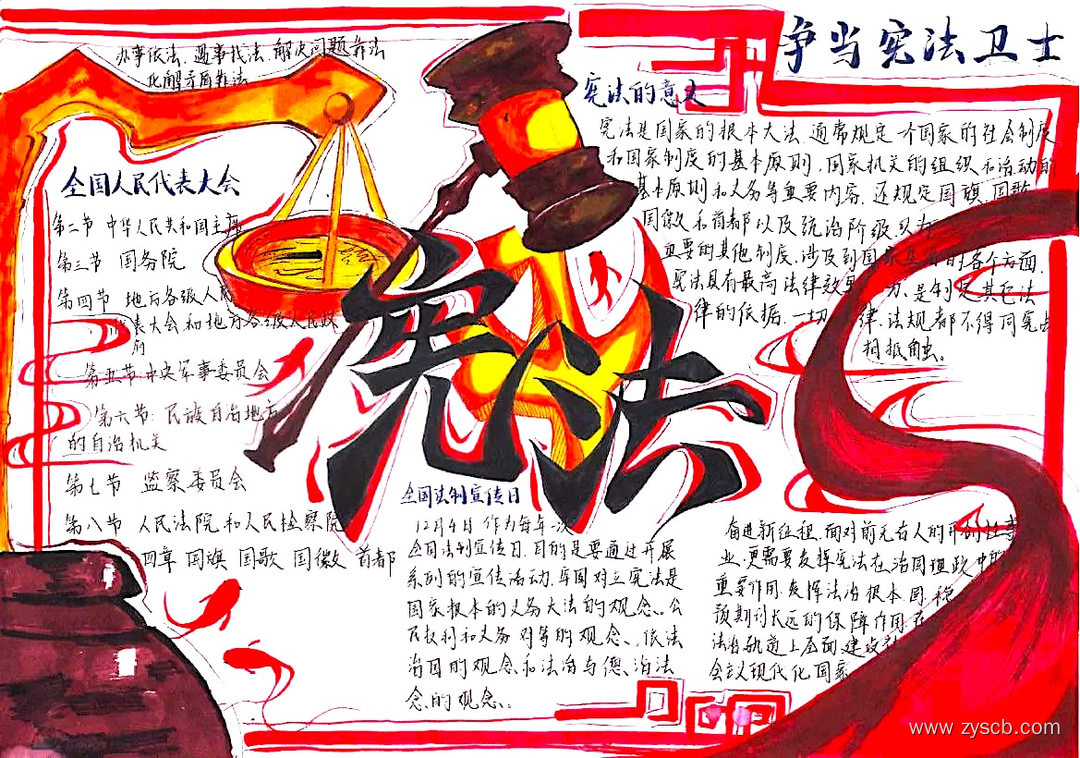 争当宪法卫士
办事依法、遇事找法、解决问题靠法
化解矛盾靠法
全国人民代表大会
第二节 中华人民共和国主席
第三节 国务院
第四节 地方各级人民
代表大会和地方各级人民政
府
第五节 中央军事委员会
第六节: 民族自治地方
的自治机关
第七节 监察委员会
第八节 人民法院和人民检察院
四章 国旗 国歌 国徽 首都
宪法
宪法的意义
宪法是国家的根本大法、通常规定一个国家的社会制度
和国家制度的基本原则、国家机关的组织和活动的
基本原则和义务等重要内容、还规定国旗、国歌
国徽和首都以及统治阶级认为
重要的其他制度、涉及到国家生活的各个方面.
宪法具有最高法律效力、是制定其它法
律的依据、一切律、法规都不得同宪法
相抵触。
全国法制宣传日
12月4日作为每年一次
全国法制宣传日、目的是要通过开展
系列的宣传活动、牢固对立宪法是
国家根本的义务大法的观念、公
民权利和义务对等的观念、依法
治国的观念和法治与德治法
念的观念、。
奋进新征程、面对前无古人的开创性事
业、更需要发挥宪法在治国理政中的
重要作用、发挥法治根本、固稳
预期利长远的保障作用、在
法治轨道上全面建设社
会议现代化国家
www.zyscb.com